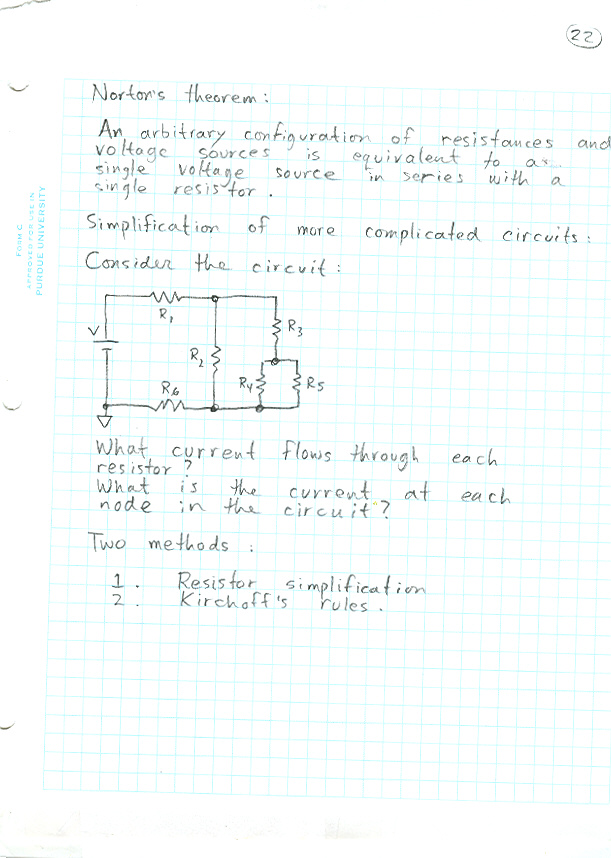 22
Norton's theorem:
An arbitrary configuration of resistances and
voltage sources is equivalent to as
single voltage source in series with a
single resistor.
FORM C
APPROVED FOR USE IN
PURDUE UNIVERSITY
Simplification of more complicated circuits:
Consider the circuit:
R1
V
R3
R2
R4
R5
R6
What current flows through each
resistor?
What is the current at each
node in the circuit?
Two methods:
1. Resistor simplification
2. Kirchoff's rules.